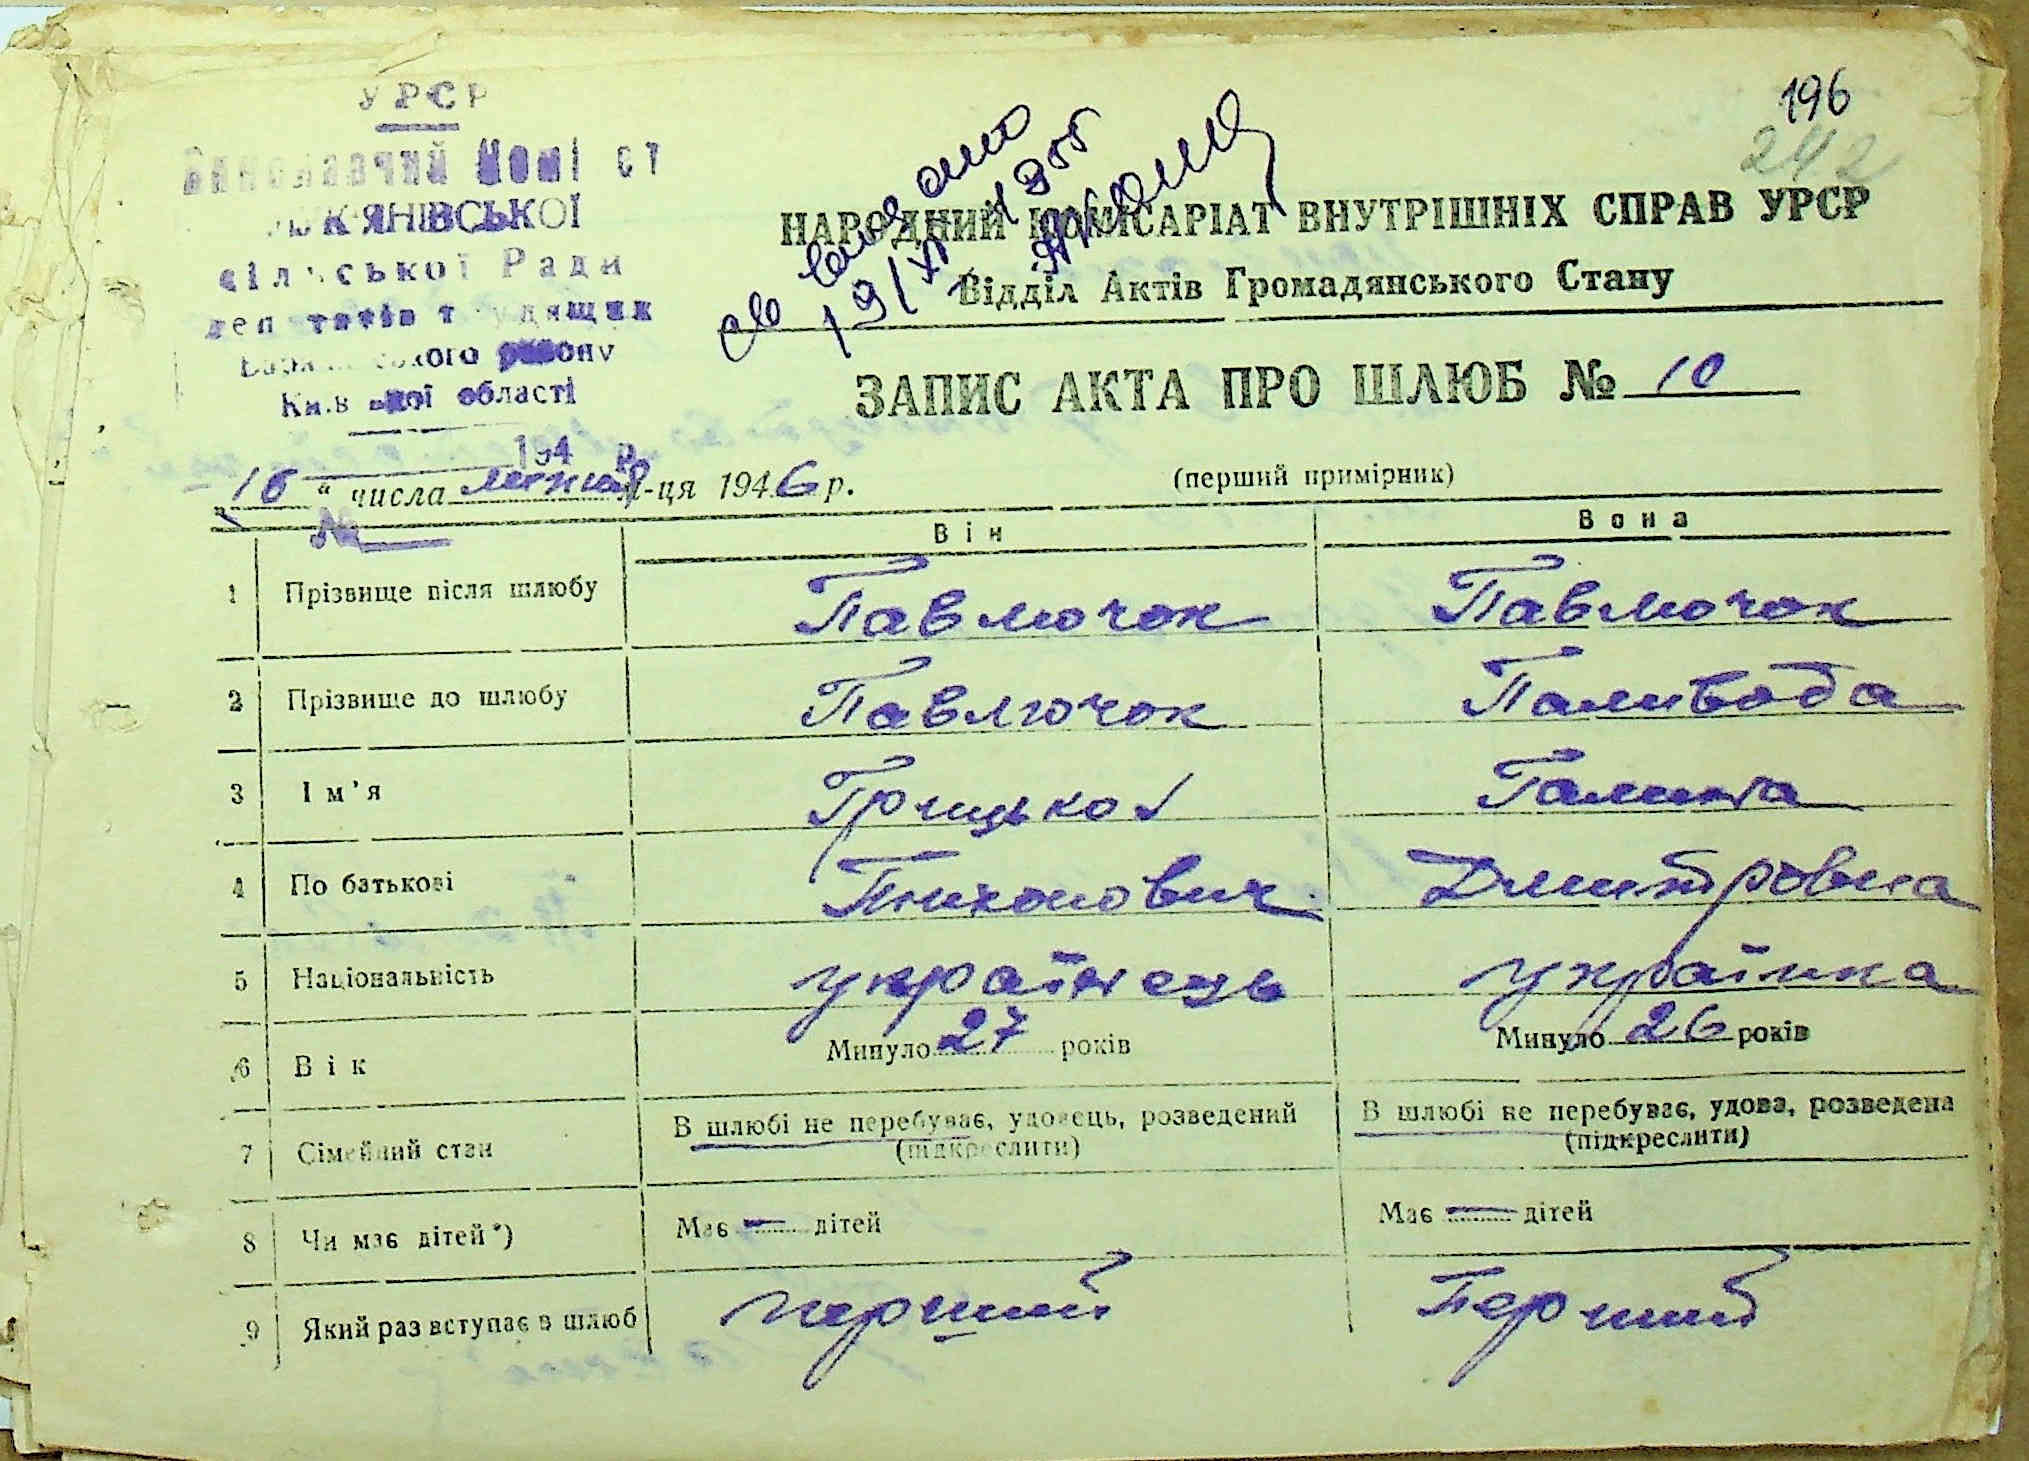 196
242
УРСР
Виконавчий Комі
ЛУК'ЯНІВСЬКОЇ
сільської Ради
деп татів т удящих
району
Київ ької області
194 р.
№
НАРОДНИЙ КОМІСАРІАТ ВНУТРІШНІХ СПРАВ УРСР
Відділ Актів Громадянського Стану
ЗАПИС АКТА ПРО ШЛЮБ № 10
"числа м-ця 1946 р.
(перший примірник)
Він Вона
1 Прізвище після шлюбу Павлючок Павлючок
2 Прізвище до шлюбу Павлючок Паливода
3 Ім'я Грицько Галина
4 По батькові Тихонович Дмитровна
5 Національність українець українка
6 Вік Минуло 27 років Минуло 26 років
7 Сімейний стан В шлюбі не перебуває, удовець, розведений (підкреслити) В шлюбі не перебуває, удова, розведена (підкреслити)
8 Чи має дітей*) Має — дітей Має — дітей
9 Який раз вступає в шлюб перший Перший